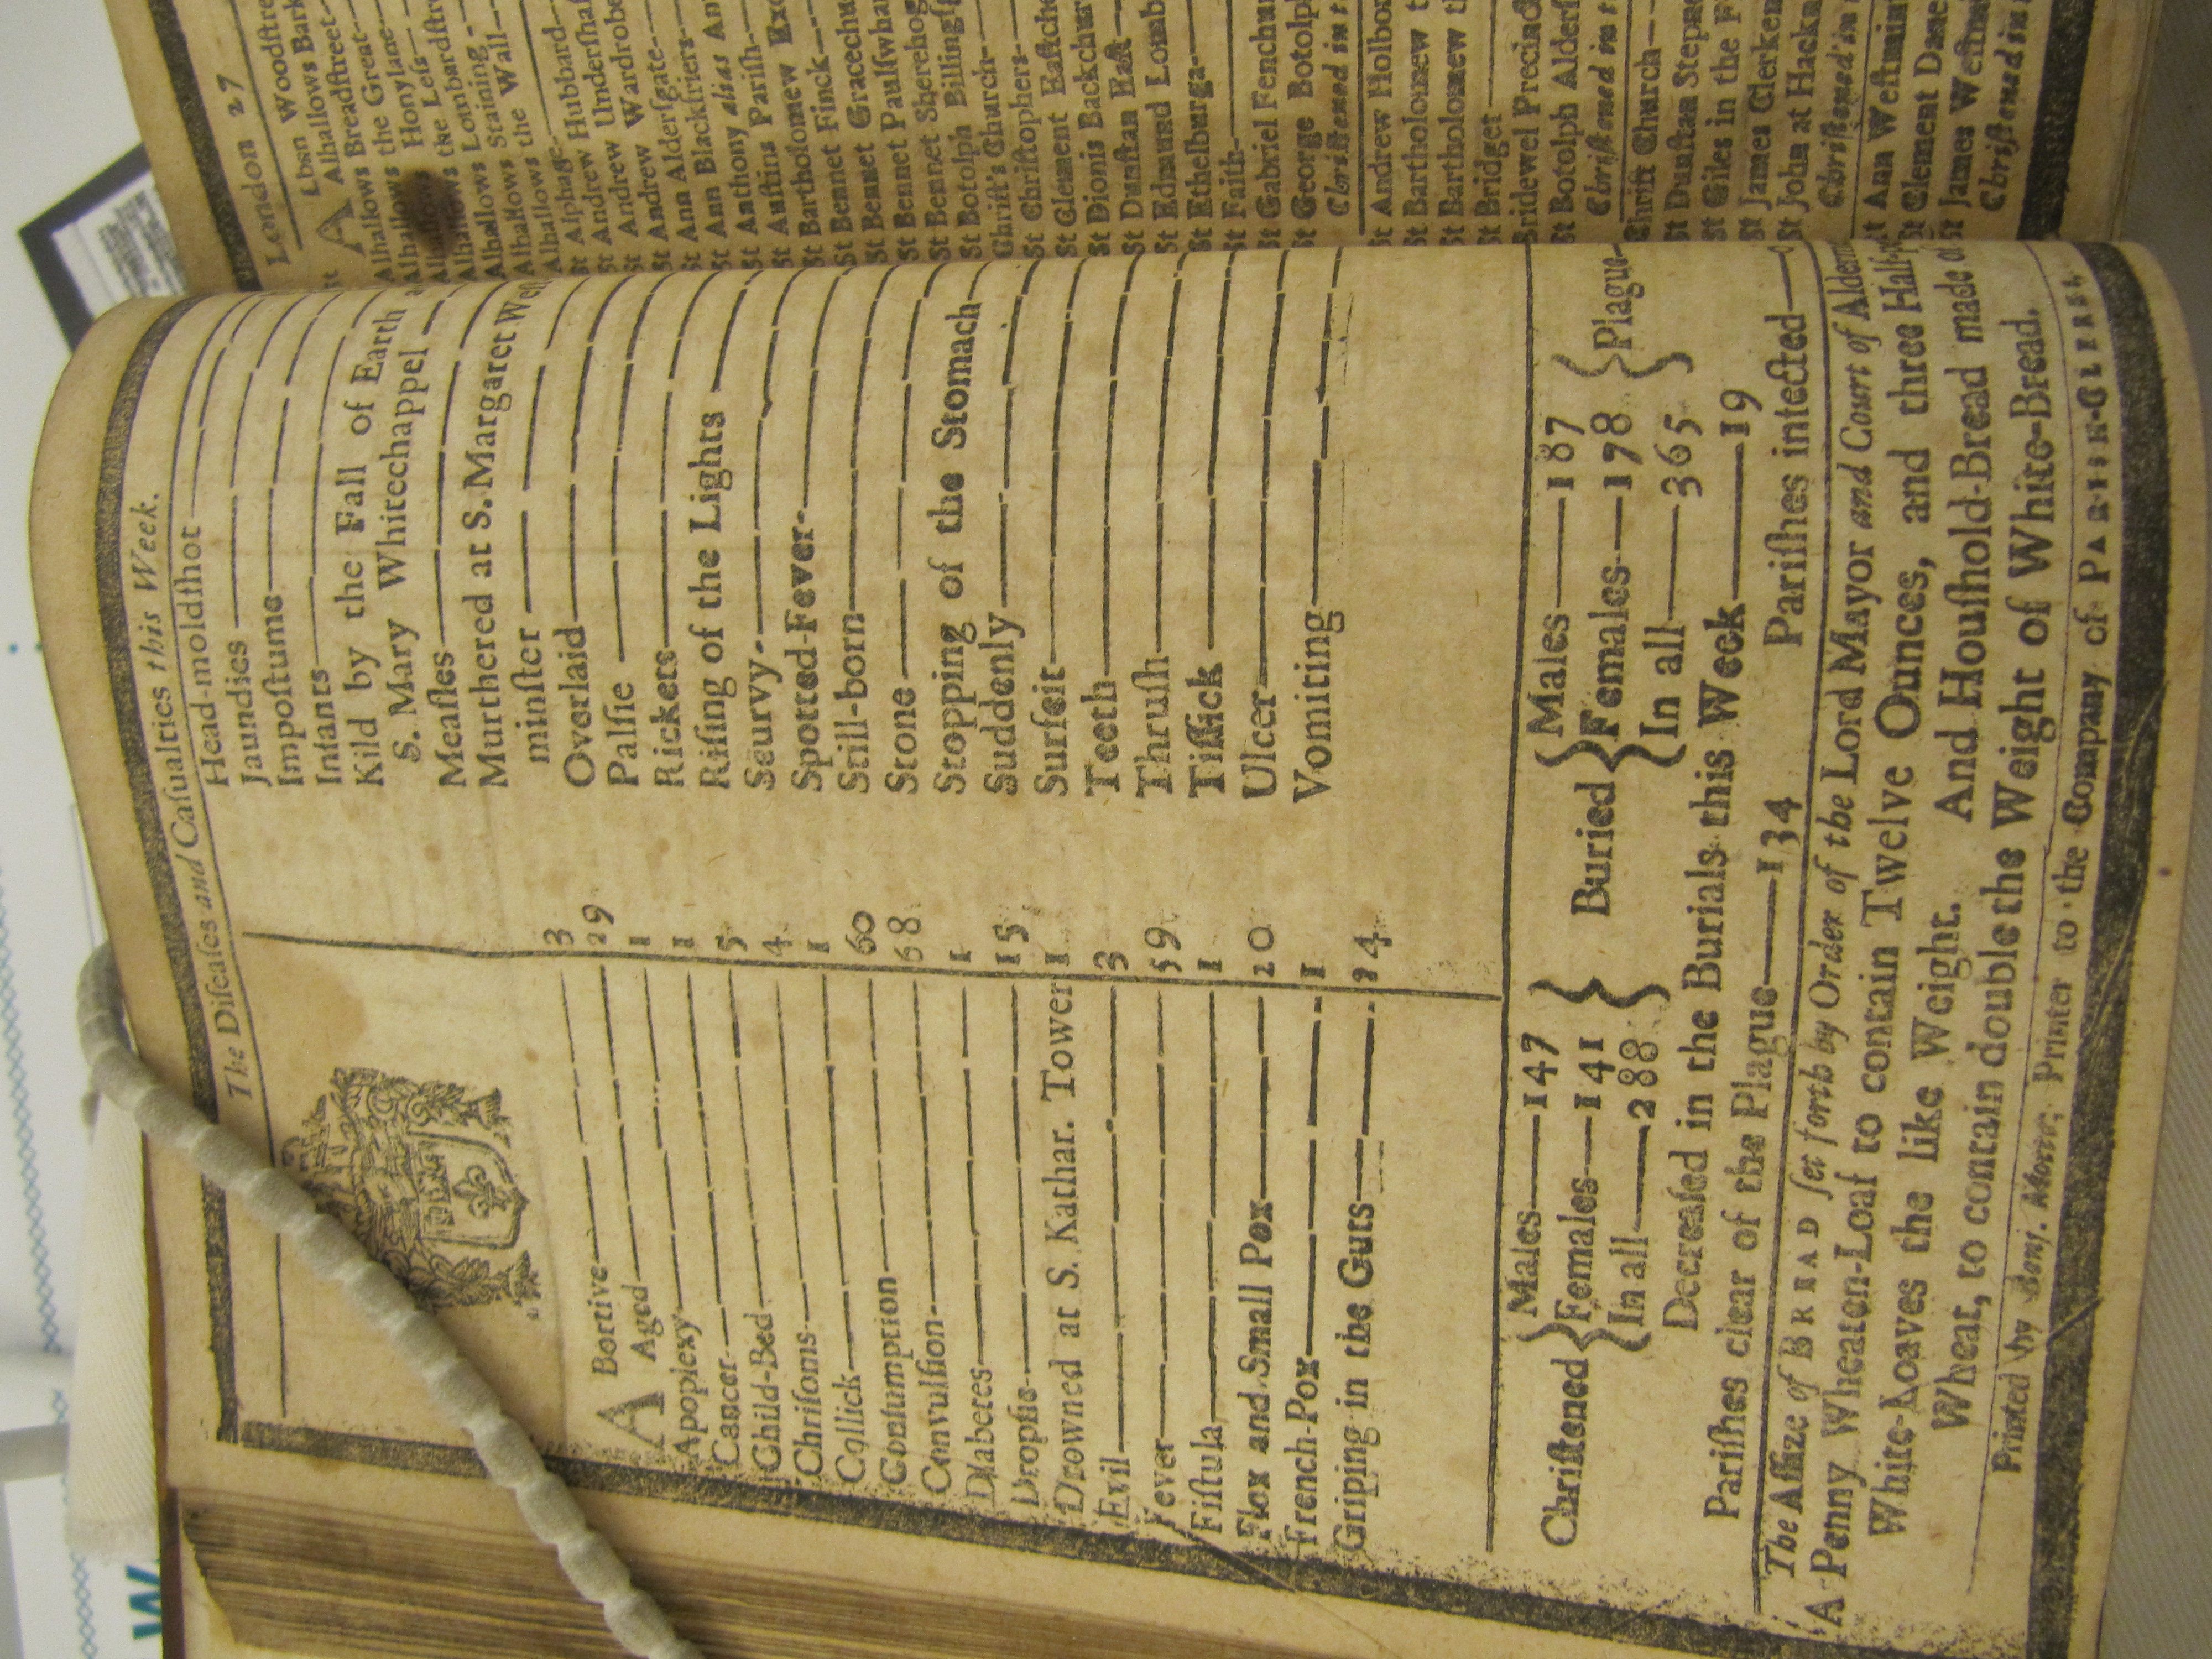 The Diſeaſes and Caſualties this Week.
A Bortive 3
Aged 29
Apoplexy 1
Cancer 1
Child-Bed 5
Chriſoms 4
Collick 1
Conſumption 60
Convulſion 68
Diabetes 1
Dropſie 15
Drowned at S. Kathar. Tower 1
Evil 3
Fever 59
Fiſtula 1
Flox and Small Pox 20
French-Pox 1
Griping in the Guts 24
Head-moldſhot
Jaundies
Impoſtume
Infants
Kild by the Fall of Earth
S. Mary Whitechappel
Meaſles
Murthered at S. Margaret
minſter
Overlaid
Palſie
Rickets
Riſing of the Lights
Scurvy
Spotted-Fever
Still-born
Stone
Stopping of the Stomach
Suddenly
Surfeit
Teeth
Thruſh
Tiſſick
Ulcer
Vomiting
Chriſtened { Males 147
Females 141
In all 288 }
Buried { Males 187
Females 178
In all 365 } Plague
Decreaſed in the Burials this Week 19
Pariſhes clear of the Plague 134 Pariſhes infected
The Aſſize of BREAD ſet forth by Order of the Lord Mayor and Court of
A Penny Wheaten-Loaf to contain Twelve Ounces, and three
White-Loaves the like Weight. And Houſhold-Bread made
Wheat, to contain double the Weight of White-Bread.
Printed by Benj. Motte, Printer to the Company of PARISH-CLERKS.
London 27
Lban Woodſtre
Alhallows Bark
Alhallows Breadſtreet
Alhallows the Great
Alhallows Honylane
the Leſs
Alhallows Lombardſtre
Alhallows Staining
Alhallows the Wall
St Alphage
St Andrew Hubbard
St Andrew Underſhaf
St Andrew Wardrobe
St Ann Alderſgate
St Ann Blackfriers
St Anthony alias An
St Auſtins Pariſh
St Bartholomew Exc
St Bennet Finck
St Bennet Gracechu
St Bennet Paulſwhar
St Bennet Sherehog
St Botolph Billingſ
Chriſt's Church
St Chriſtophers
St Clement Eaſtche
St Dionis Backchur
St Dunſtan Eaſt
St Edmund Lomb
St Ethelburga
St Faith
St Gabriel Fenchur
St George Botolph
Chriſtened in t
St Andrew Holbor
St Bartholomew t
St Bartholomew th
St Bridget
Bridewel Precinc
St Botolph Alderſ
Chriſtened in t
Chriſt Church
St Dunſtan Stepne
St Giles in the F
St James Clerken
St John at Hackn
Chriſtened in
St Ann Weſtmin
St Clement Dane
St James Weſtm
Chriſtened in